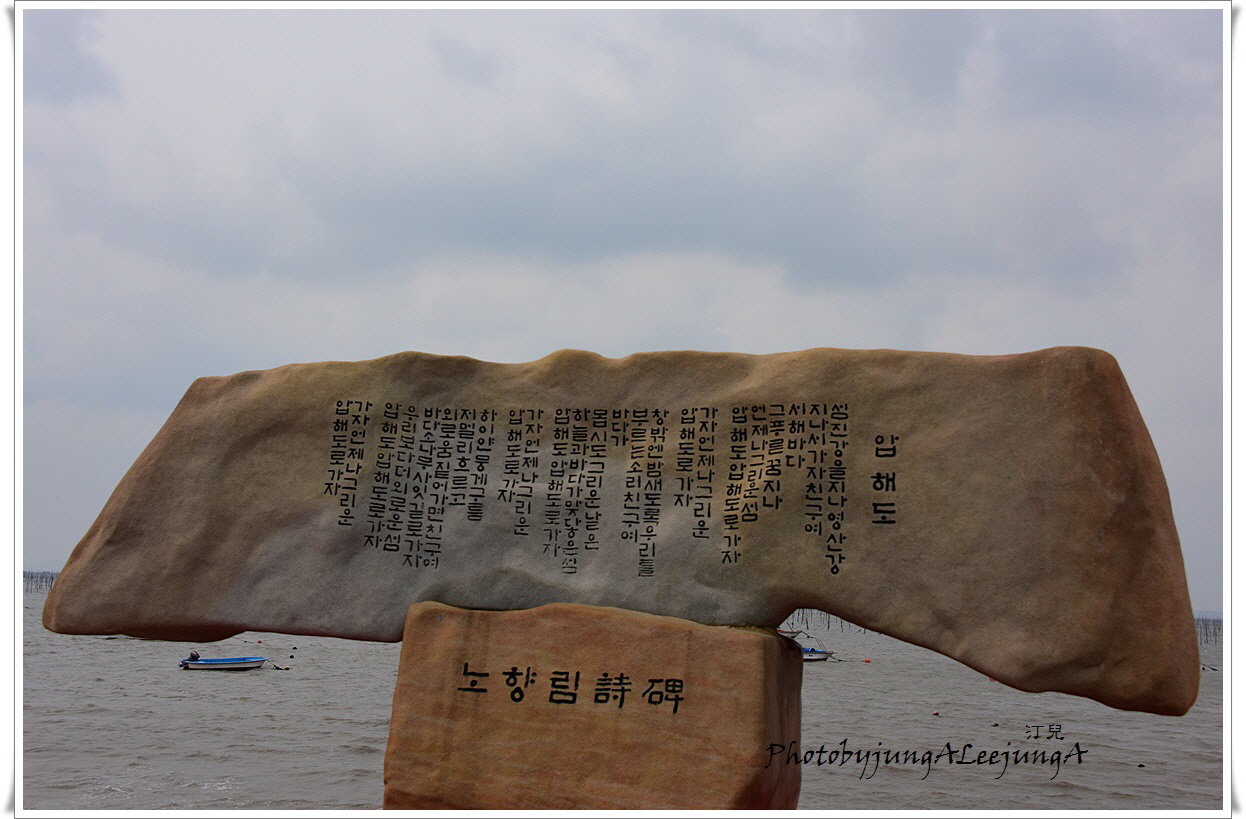 압해도
섬진강을지나영산강
지나서가자친구여
서해바다
그푸른꿈지나
언제나그리운섬
압해도압해도로가자
가자언제나그리운
압해도로가자
창밖엔밤새도록우리를
부르는소리친구여
바다가
몹시도그리운날은
하늘과바다가맞닿은섬
압해도압해도로가자
가자언제나그리운
압해도로가자
하이얀뭉게구름
저멀리흐르고
외로움짙어가면친구여
바다소나무사잇길로가자
우리보다더외로운섬
압해도압해도로가자
가자언제나그리운
압해도로가자
노향림詩碑
汀兒
PhotobyjungALeejungA